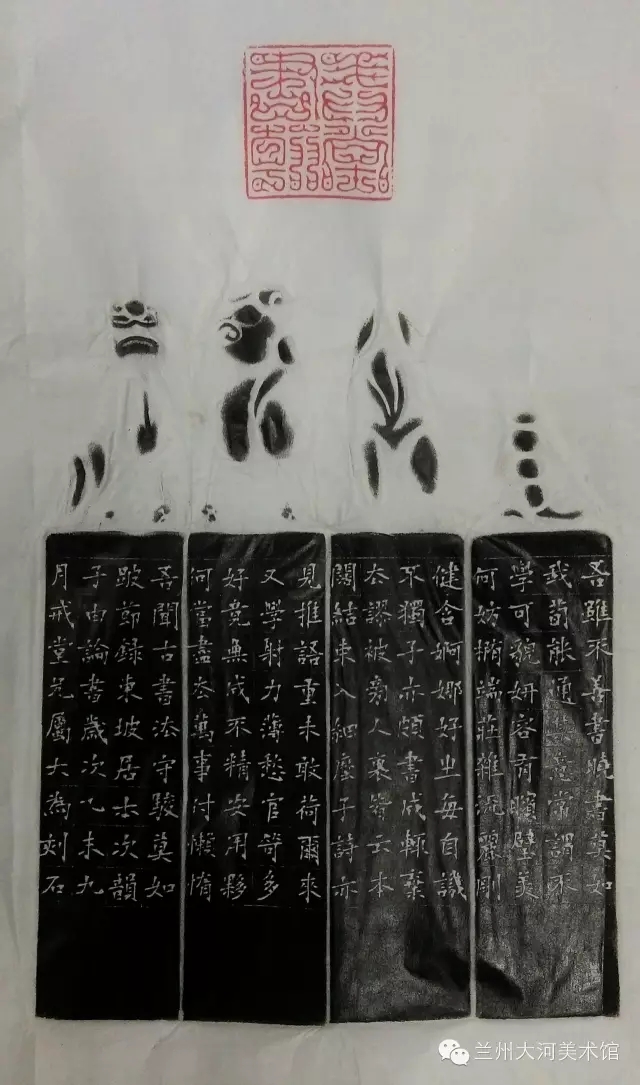 吾雖不善書曉書莫如
我苟能通其意常謂不
學可貌妍容有顰璧美
何妨橢端莊雜流麗剛
健含婀娜好之每自譏
不獨子亦頗書成輒棄
去謬被旁人裹皆云本
闊結束入細麼子詩亦
見推語重未敢荷爾來
又學射力薄愁官笴多
好竟無成不精安用夥
何當盡去萬事付懶惰
吾聞古書法守駿莫如
跛節錄東坡居士次韻
子由論書歲次乙未九
月戒堂兄屬大為刻石
兰州大河美术馆